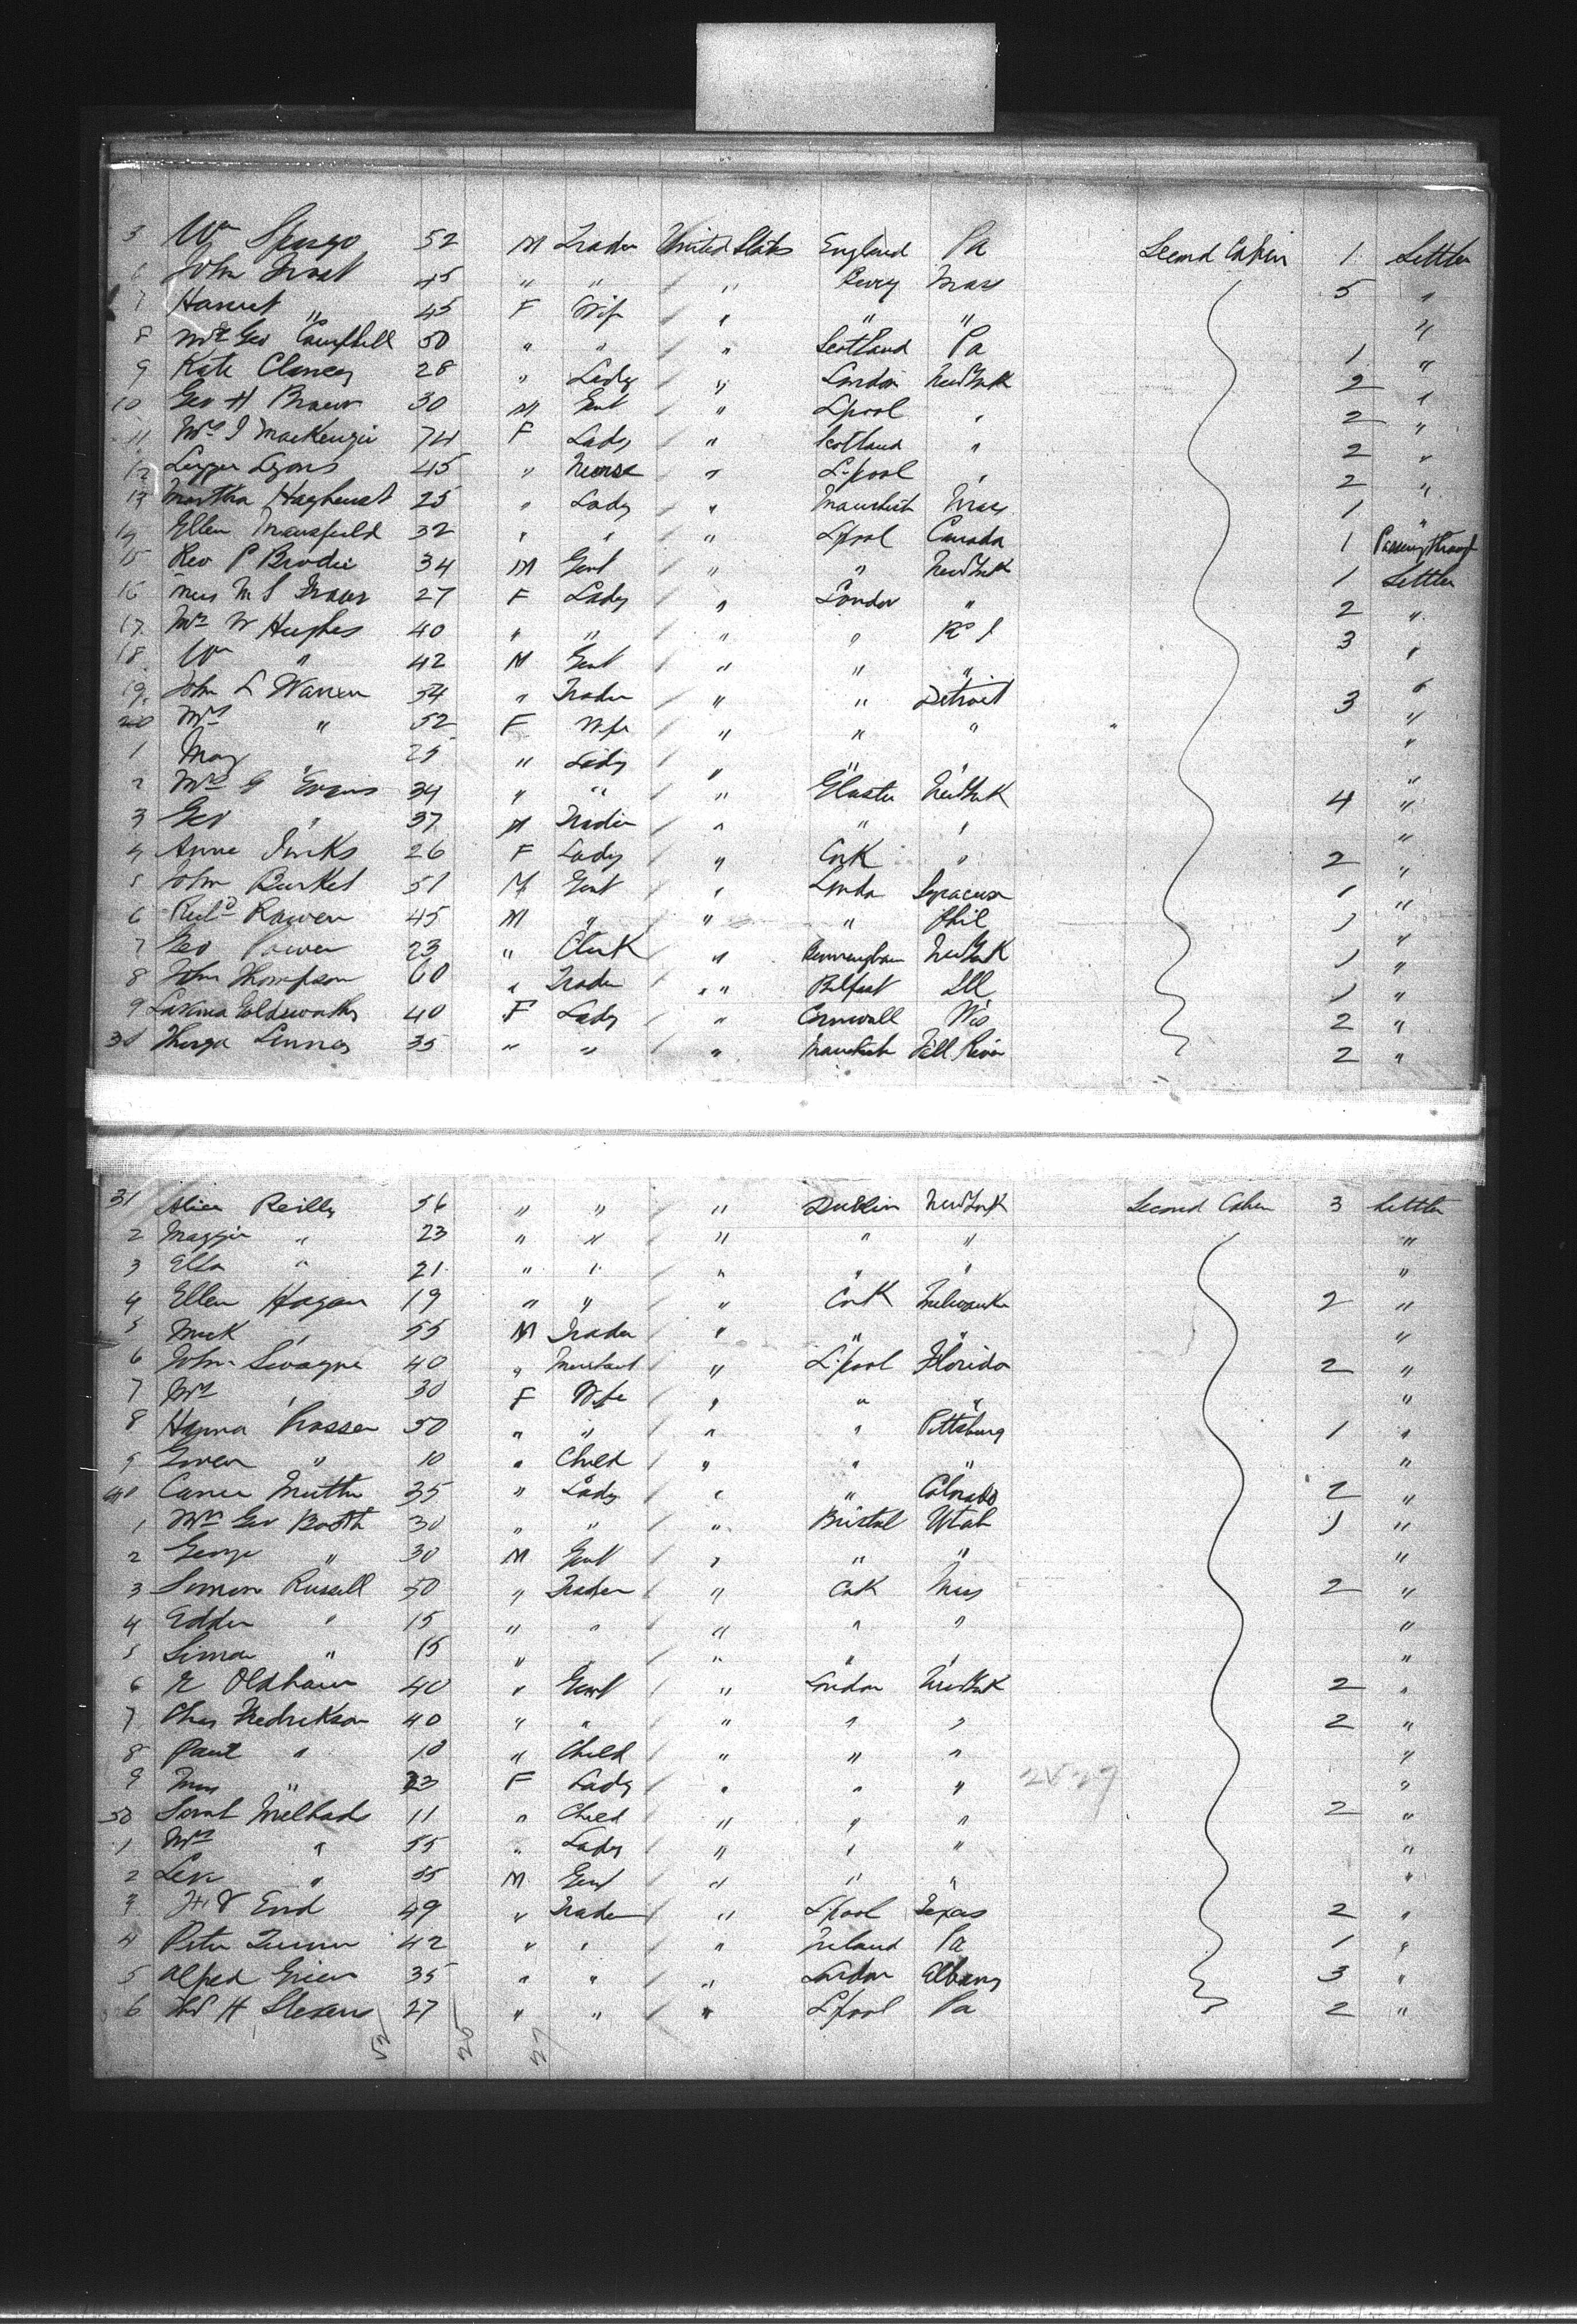 5 Wm Spargo 52 M Trader United States England Pa Second Cabin 1 Settler
6 John Trust 45 " " " Bury Mass 5 "
7 Harriet " 45 F Wife " " " "
8 Mrs Geo Campbell 50 " " " Scotland Pa 1 "
9 Kate Clancey 28 " Lady " London New York 2 "
10 Geo H Brown 30 M Gent " Lpool " 2 "
11 Mrs J MacKenzie 74 F Lady " Scotland " 2 "
12 Lizzie Lyons 45 " Nurse " L'pool " 2 "
13 Martha 25 " Lady " Manchest Mass 1 "
14 Ellen Mansfield 32 " " " Lpool Canada 1 Passing through
15 Rev P Brodie 34 M Gent " " New York 1 Settler
16 Miss M S 27 F Lady " London " 2 "
17 Mrs W Hughes 40 " " " " R I 3 "
18 Wm " 42 M Gent " " " "
19 John L Warren 54 " Trader " " Detroit 3 "
20 Mrs " 52 F Wife " " " "
1 May " 25 " Lady " " " "
2 Mrs G Evans 34 " " " Gloster New York 4 "
3 Geo " 37 M Trader " " " "
4 Anne Jinks 26 F Lady " Cork " 2 "
5 John Burket 51 M Gent " London Syracuse 1 "
6 Richd Rowen 45 M " " " Phil 1 "
7 Geo 23 " Clerk " Birmingham New York 1 "
8 John Thompson 60 " Trader " Belfast Ill 1 "
9 Goldsworthy 40 F Lady " Cornwall Wis 2 "
30 35 " " " Manchest Fall River 2 "
31 Alice Reilly 56 " " " Dublin New York Second Cabin 3 Settler
2 Maggie " 23 " " " " " "
3 Ella " 21 " " " " " "
4 Ellen Hogan 19 " " " Cork Milwaukee 2 "
5 Mick " 55 M Trader " " " "
6 John Swayne 40 " Merchant " L'pool Florida 2 "
7 Mrs " 30 F Wife " " " "
8 Hanna Prosser 50 " " " " Pittsburg 1 "
9 Gwen " 10 " Child " " " "
40 Carrie 35 " Lady " " Colorado 2 "
1 Mrs Geo Booth 30 " " " Bristol Utah 1 "
2 George " 30 M Gent " " " "
3 Simon Russell 50 " Trader " Cork Miss 2 "
4 Eddie " 15 " " " " " "
5 Simon " 15 " " " " " "
6 Oldham 40 " Gent " London New York 2 "
7 Chas Fredrikson 40 " " " " " 2 "
8 Paul " 10 " Child " " " "
9 Miss " 23 F Lady " " " 2829 "
50 Sarah 11 " Child " " " 2 "
1 Mrs " 55 " Lady " " " "
2 Levi " 55 M Gent " " " "
3 End 49 " Trader " Lpool Texas 2 "
4 Peter 42 " " " Ireland Pa 1 "
5 Alfred Grier 35 " " " London Albany 3 "
6 H Stevens 27 " " " Lpool Pa 2 "
52 25 27